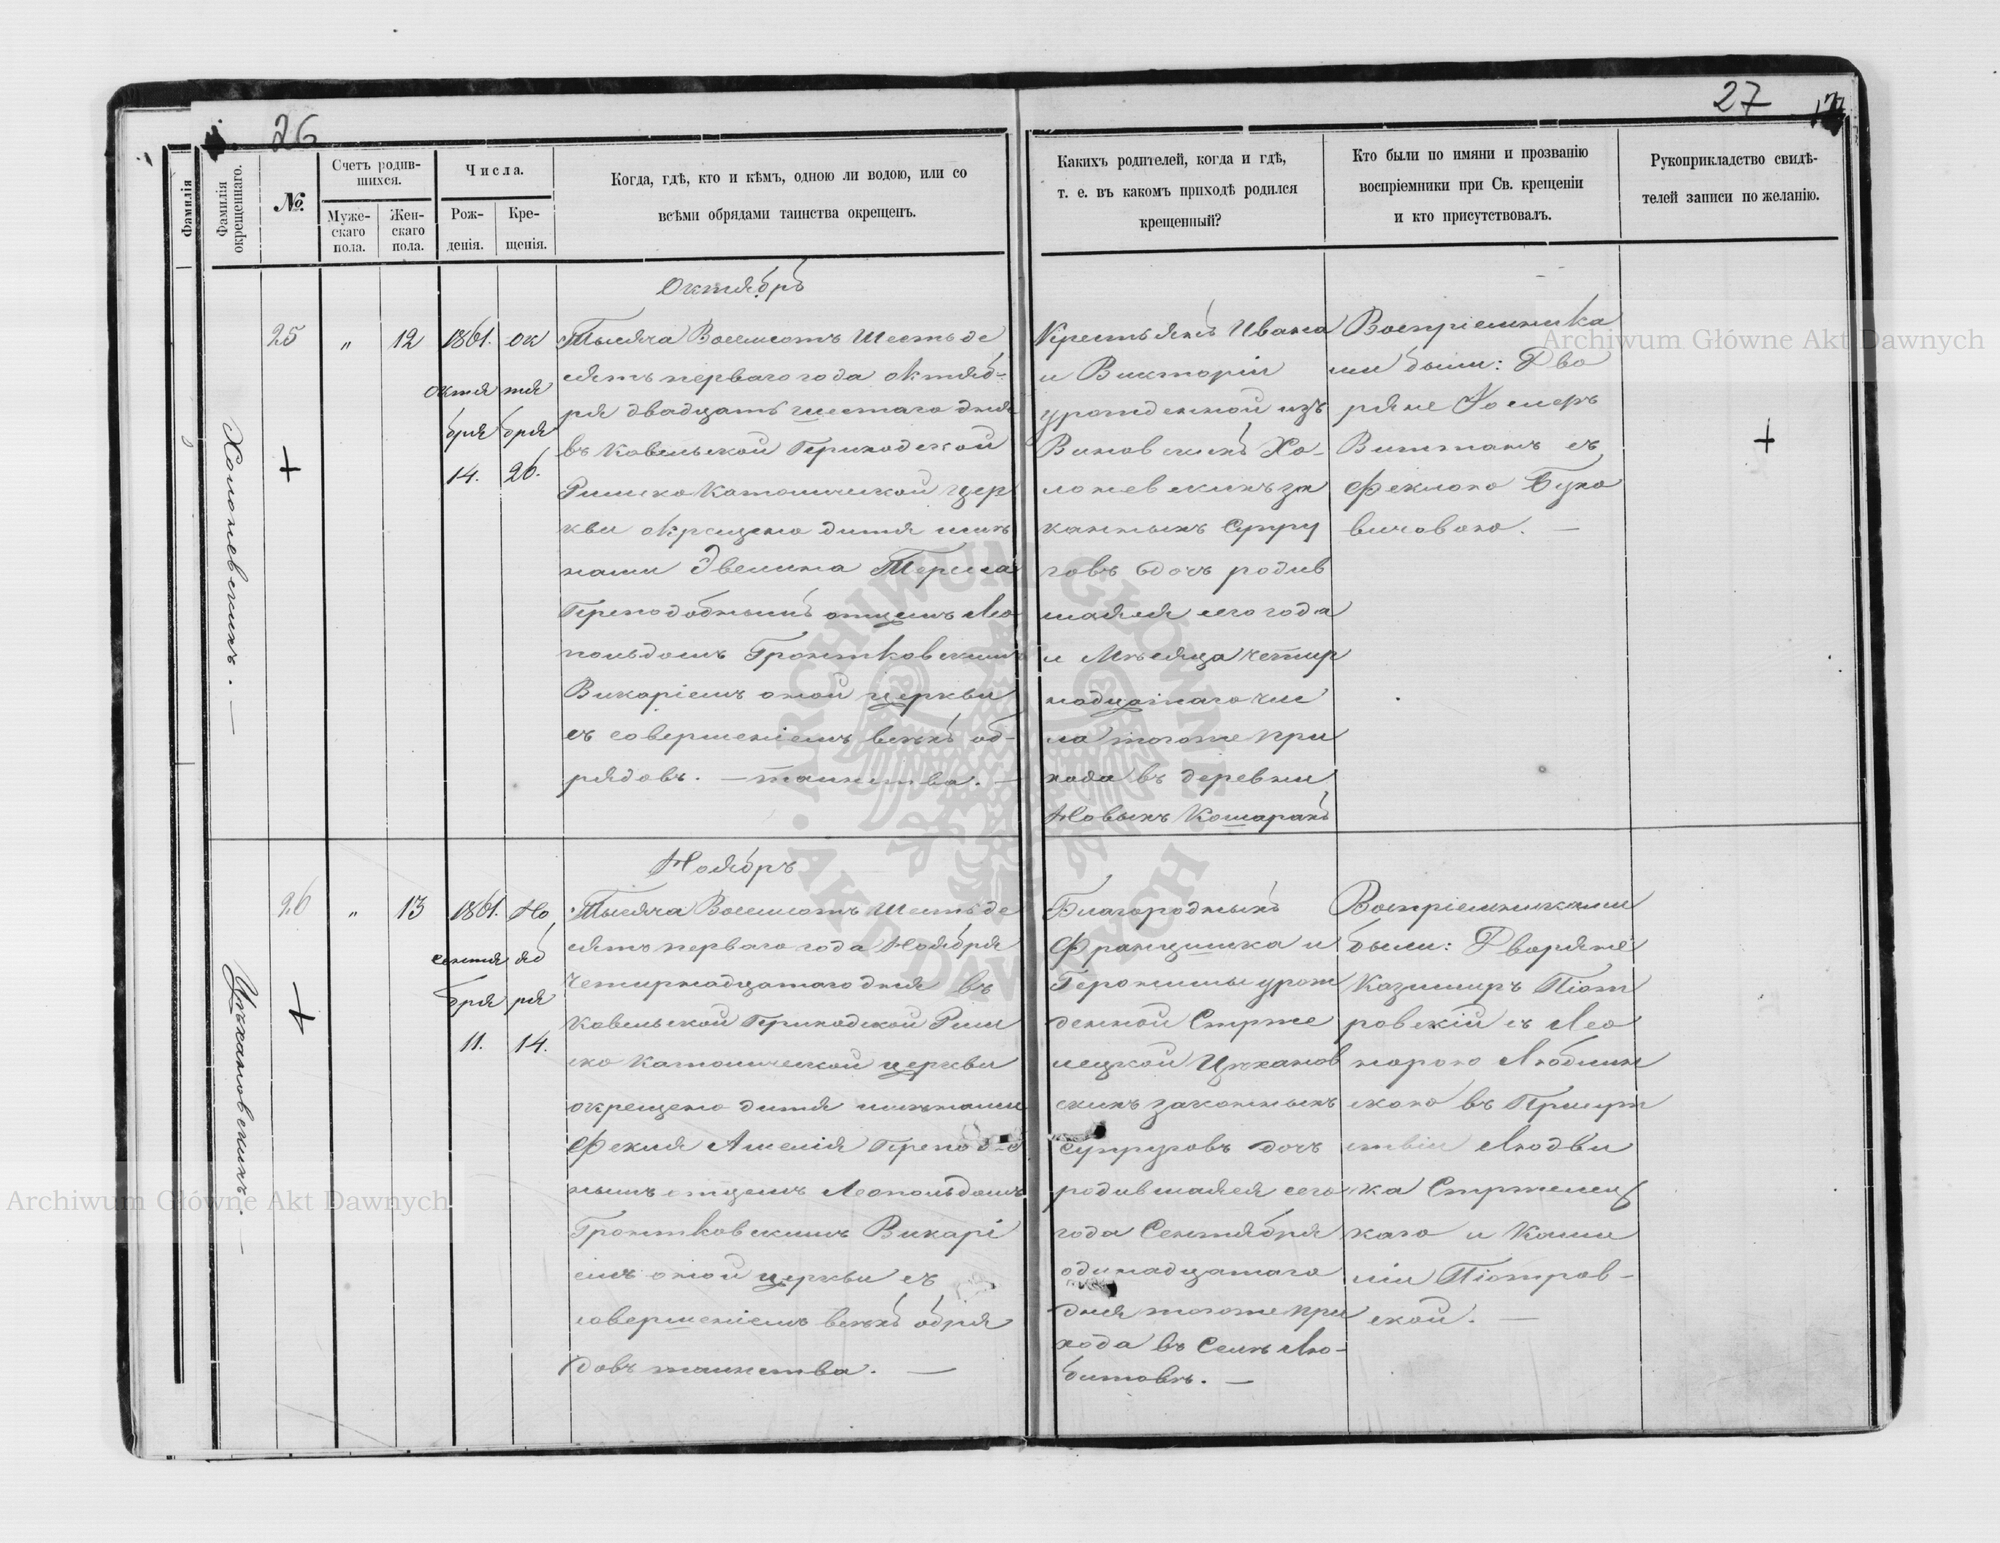 26
27
Фамилія
Фамилія окрещеннаго.
№.
Счетъ родив-
шихся.
Муже-
скаго
пола.
Жен-
скаго
пола.
Числа.
Рож-
денія.
Кре-
щенія.
Когда, гдѣ, кто и кѣмъ, одною ли водою, или со
всѣми обрядами таинства окрещенъ.
Какихъ родителей, когда и гдѣ,
т. е. въ какомъ приходѣ родился
крещенный?
Кто были по имяни и прозванію
воспріемники при Св. крещеніи
и кто присутствовалъ.
Рукоприкладство свидѣ-
телей записи по желанію.
Холоневскихъ. —
25
"
12
1861.
Октя
бря
14.
Ок
тя
бря
26.
Октябрь
Тысяча Восемсотъ Шестьде
сятъ перваго года Октяб-
ря двадцать шестаго дня
въ Ковельской Приходской
Римско Католической Цер
кви окрещено дитя имѣ
нами Эвелина Тереса
Преподобнымъ отцемъ Лео
польдомъ Гронтковскимъ
Викаріемъ оной церкви
съ совершеніемъ всѣхъ об-
рядовъ. — таинства. —
Крестьянъ Ивана
и Викторіи
урожденной изъ
Виновскихъ Хо-
лоневскихъ за
конныхъ Супру
говъ дочь родив
шаяся сего года
и Мѣсяца четыр
надцатаго чис
ла тогоже при
хода въ деревни
Новыхъ Кошарахъ
Воспріемника
ми были: Дво
ряне
Витманъ съ
Феклою Буко
вичовою. —
Цѣхановскихъ. —
26
"
13
1861.
Сентя
бря
11.
Но
яб
ря
14.
Ноябрь
Тысяча Восемсотъ Шестьде
сятъ перваго года Ноября
Четырнадцатаго дня въ
Ковельской Приходской Рим
ско Католической церкви
окрещено дитя имѣнами
Фекля Амелія Преподоб
нымъ отцемъ Леопольдомъ
Гронтковскимъ Викарі
емъ оной церкви съ
совершеніемъ всѣхъ обря
довъ таинства. —
Благородныхъ
Францишка и
Геронимы урож
денной Стрже
лецкой Цѣханов
скихъ законныхъ
супруговъ дочь
родившаяся сего
года Сентября
одинадцатаго
дня тогоже при
хода въ Селѣ Лю-
битовѣ. —
Воспріемниками
были: Дворяне
Казимиръ Піот
ровскій съ Лео
норою Люблин
скою въ Присут
ствіи Людви
ка Стржелец
каго и Коми
ліи Піотров-
ской. —
Archiwum Główne Akt Dawnych
Archiwum Główne Akt Dawnych
ARCHIWUM GŁÓWNE · AKT DAWNYCH ·